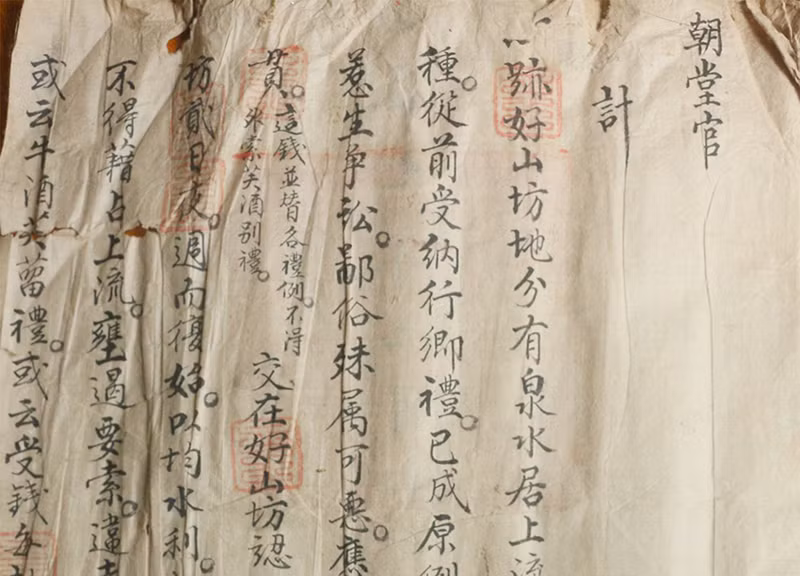 朝堂官
計
跡好山坊地分有泉水居上流
種。從前受納行鄉禮。已成原例
惹生争訟。鄙俗殊属可惡。應
貫。這錢並替各禮例不得
外索芙酒别禮。
交在好山坊認
坊貳日夜。週而復始。以均水利。
不得藉占上流。壅遏要索。違
或云牛酒芙蒥禮。或云受錢